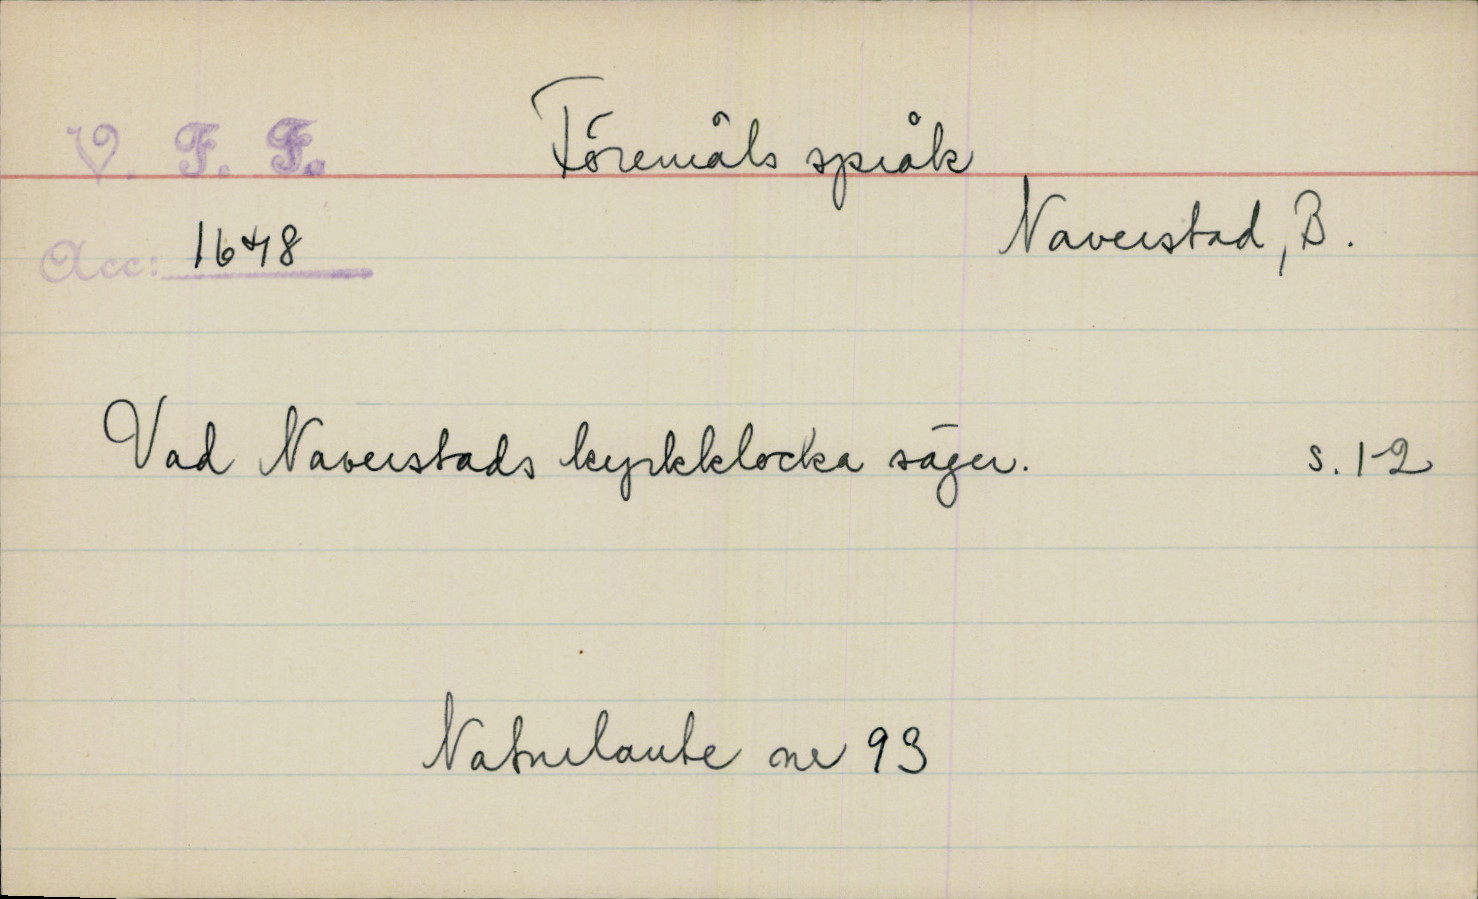 V. F. F. Föremåls språk
Naverstad, B.
Acc: 1648
Vad Naverstads kyrkklocka säger. s. 1-2
Naturlaute nr 93